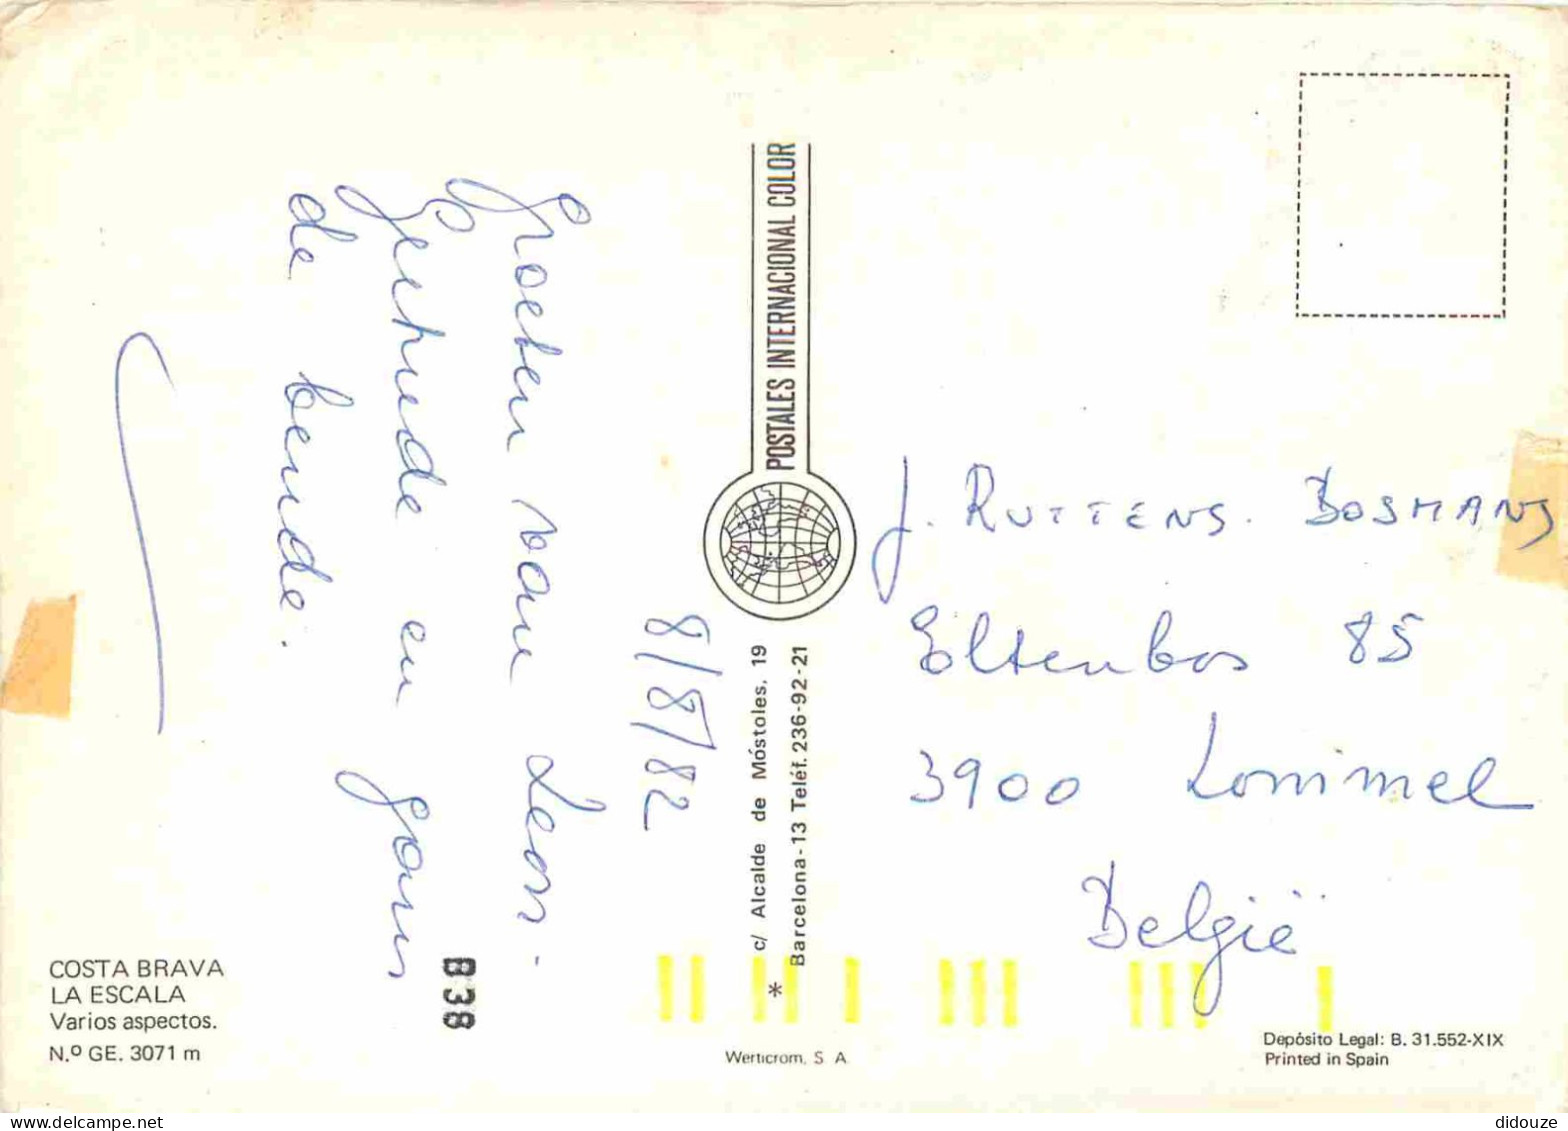 8/8/82
Groeten van Leon.
Gertrude en gans
de bende.
POSTALES INTERNACIONAL COLOR
c/ Alcalde de Móstoles, 19
Barcelona-13 Teléf. 236-92-21
*
J. RUTTENS. BOSMANS
Eltenbos 85
3900 Lommel
België
COSTA BRAVA
LA ESCALA
Varios aspectos.
N.º GE. 3071 m
B38
Werticrom, S A
Depósito Legal: B. 31.552-XIX
Printed in Spain
didouze